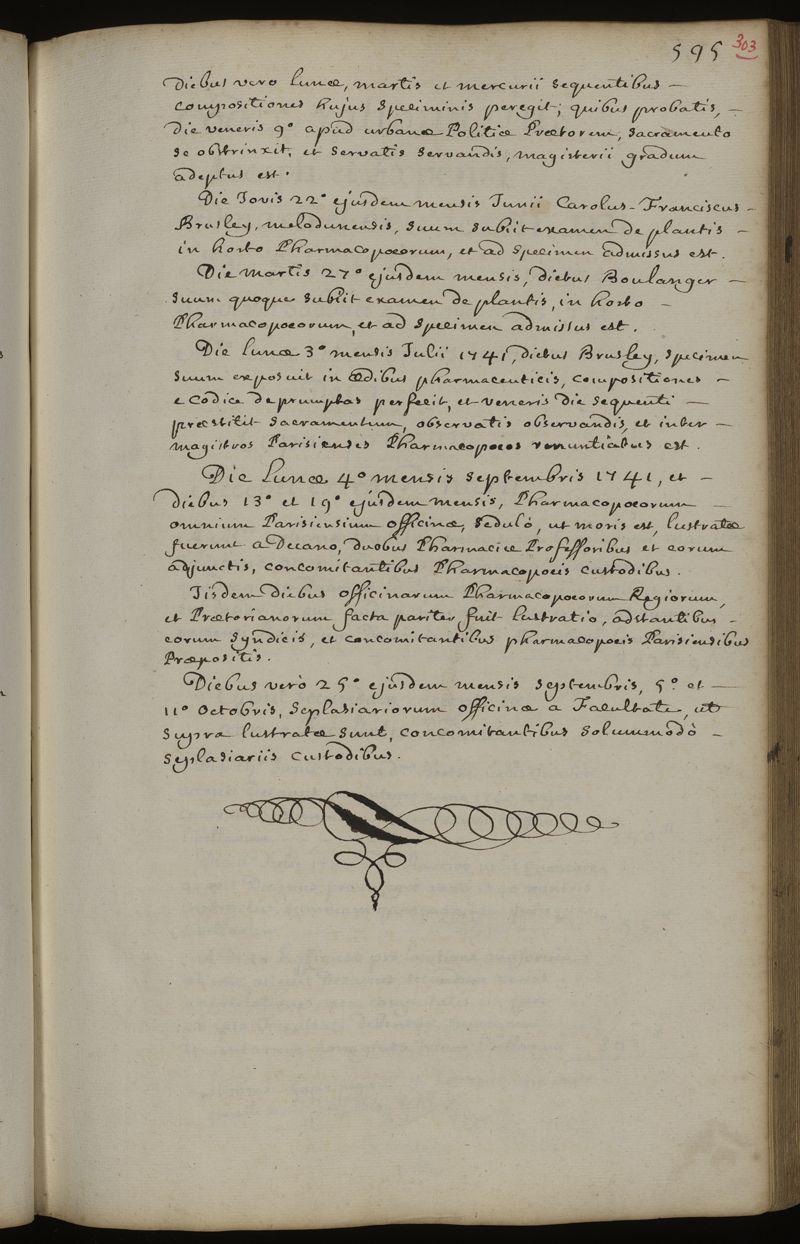 595 303
Diebus vero Lunæ, martis et mercurii sequentibus –
compositiones hujus speciminis peregit; quibus probatis, –
die veneris 9º apud urbanæ Politiæ Prætorem, sacramento
se obstrinxit, et servatis servandis, magisterii gradum
adeptus est.
Die Jovis 22º ejusdem mensis Junii Carolus-Franciscus –
Brusley, melodunensis, suum subiit examen de plantis –
in horto Pharmacopoeorum, et ad specimen admissus est.
Die martis 27º ejusdem mensis, dictus Boulanger –
suum quoque subiit examen de plantis, in horto –
Pharmacopoeorum, et ad specimen admissus est.
Die lunæ 3º mensis Julii 1741, dictus Brusley, specimen
suum exposuit in ædibus pharmaceuticis, compositiones –
e codice depromptas perfecit, et veneris die sequenti –
præstitit sacramentum, observatis observandis, et inter –
magistros Parisienses Pharmacopoeos renuntiatus est.
Die Lunæ 4º mensis septembris 1741, et –
diebus 13º et 19º ejusdem mensis, Pharmacopoeorum –
omnium Parisiensium officinæ, sedulò, ut moris est, lustratæ
fuerunt a Decano, duobus Pharmaciæ Professoribus et eorum
adjunctis, concomitantibus Pharmacopoeis custodibus.
Iisdem diebus officinarum Pharmacopoeorum Regiorum,
et Prætorianorum facta pariter fuit lustratio, adstantibus –
eorum syndicis, et concomitantibus pharmacopoeis Parisiensibus
Præpositis.
Diebus verò 25º ejusdem mensis septembris, 5º. et –
11º octobris, seplasiariorum officinæ a Facultate, ut
supra lustratæ sunt, concomitantibus solummodò –
seplasiariis custodibus.